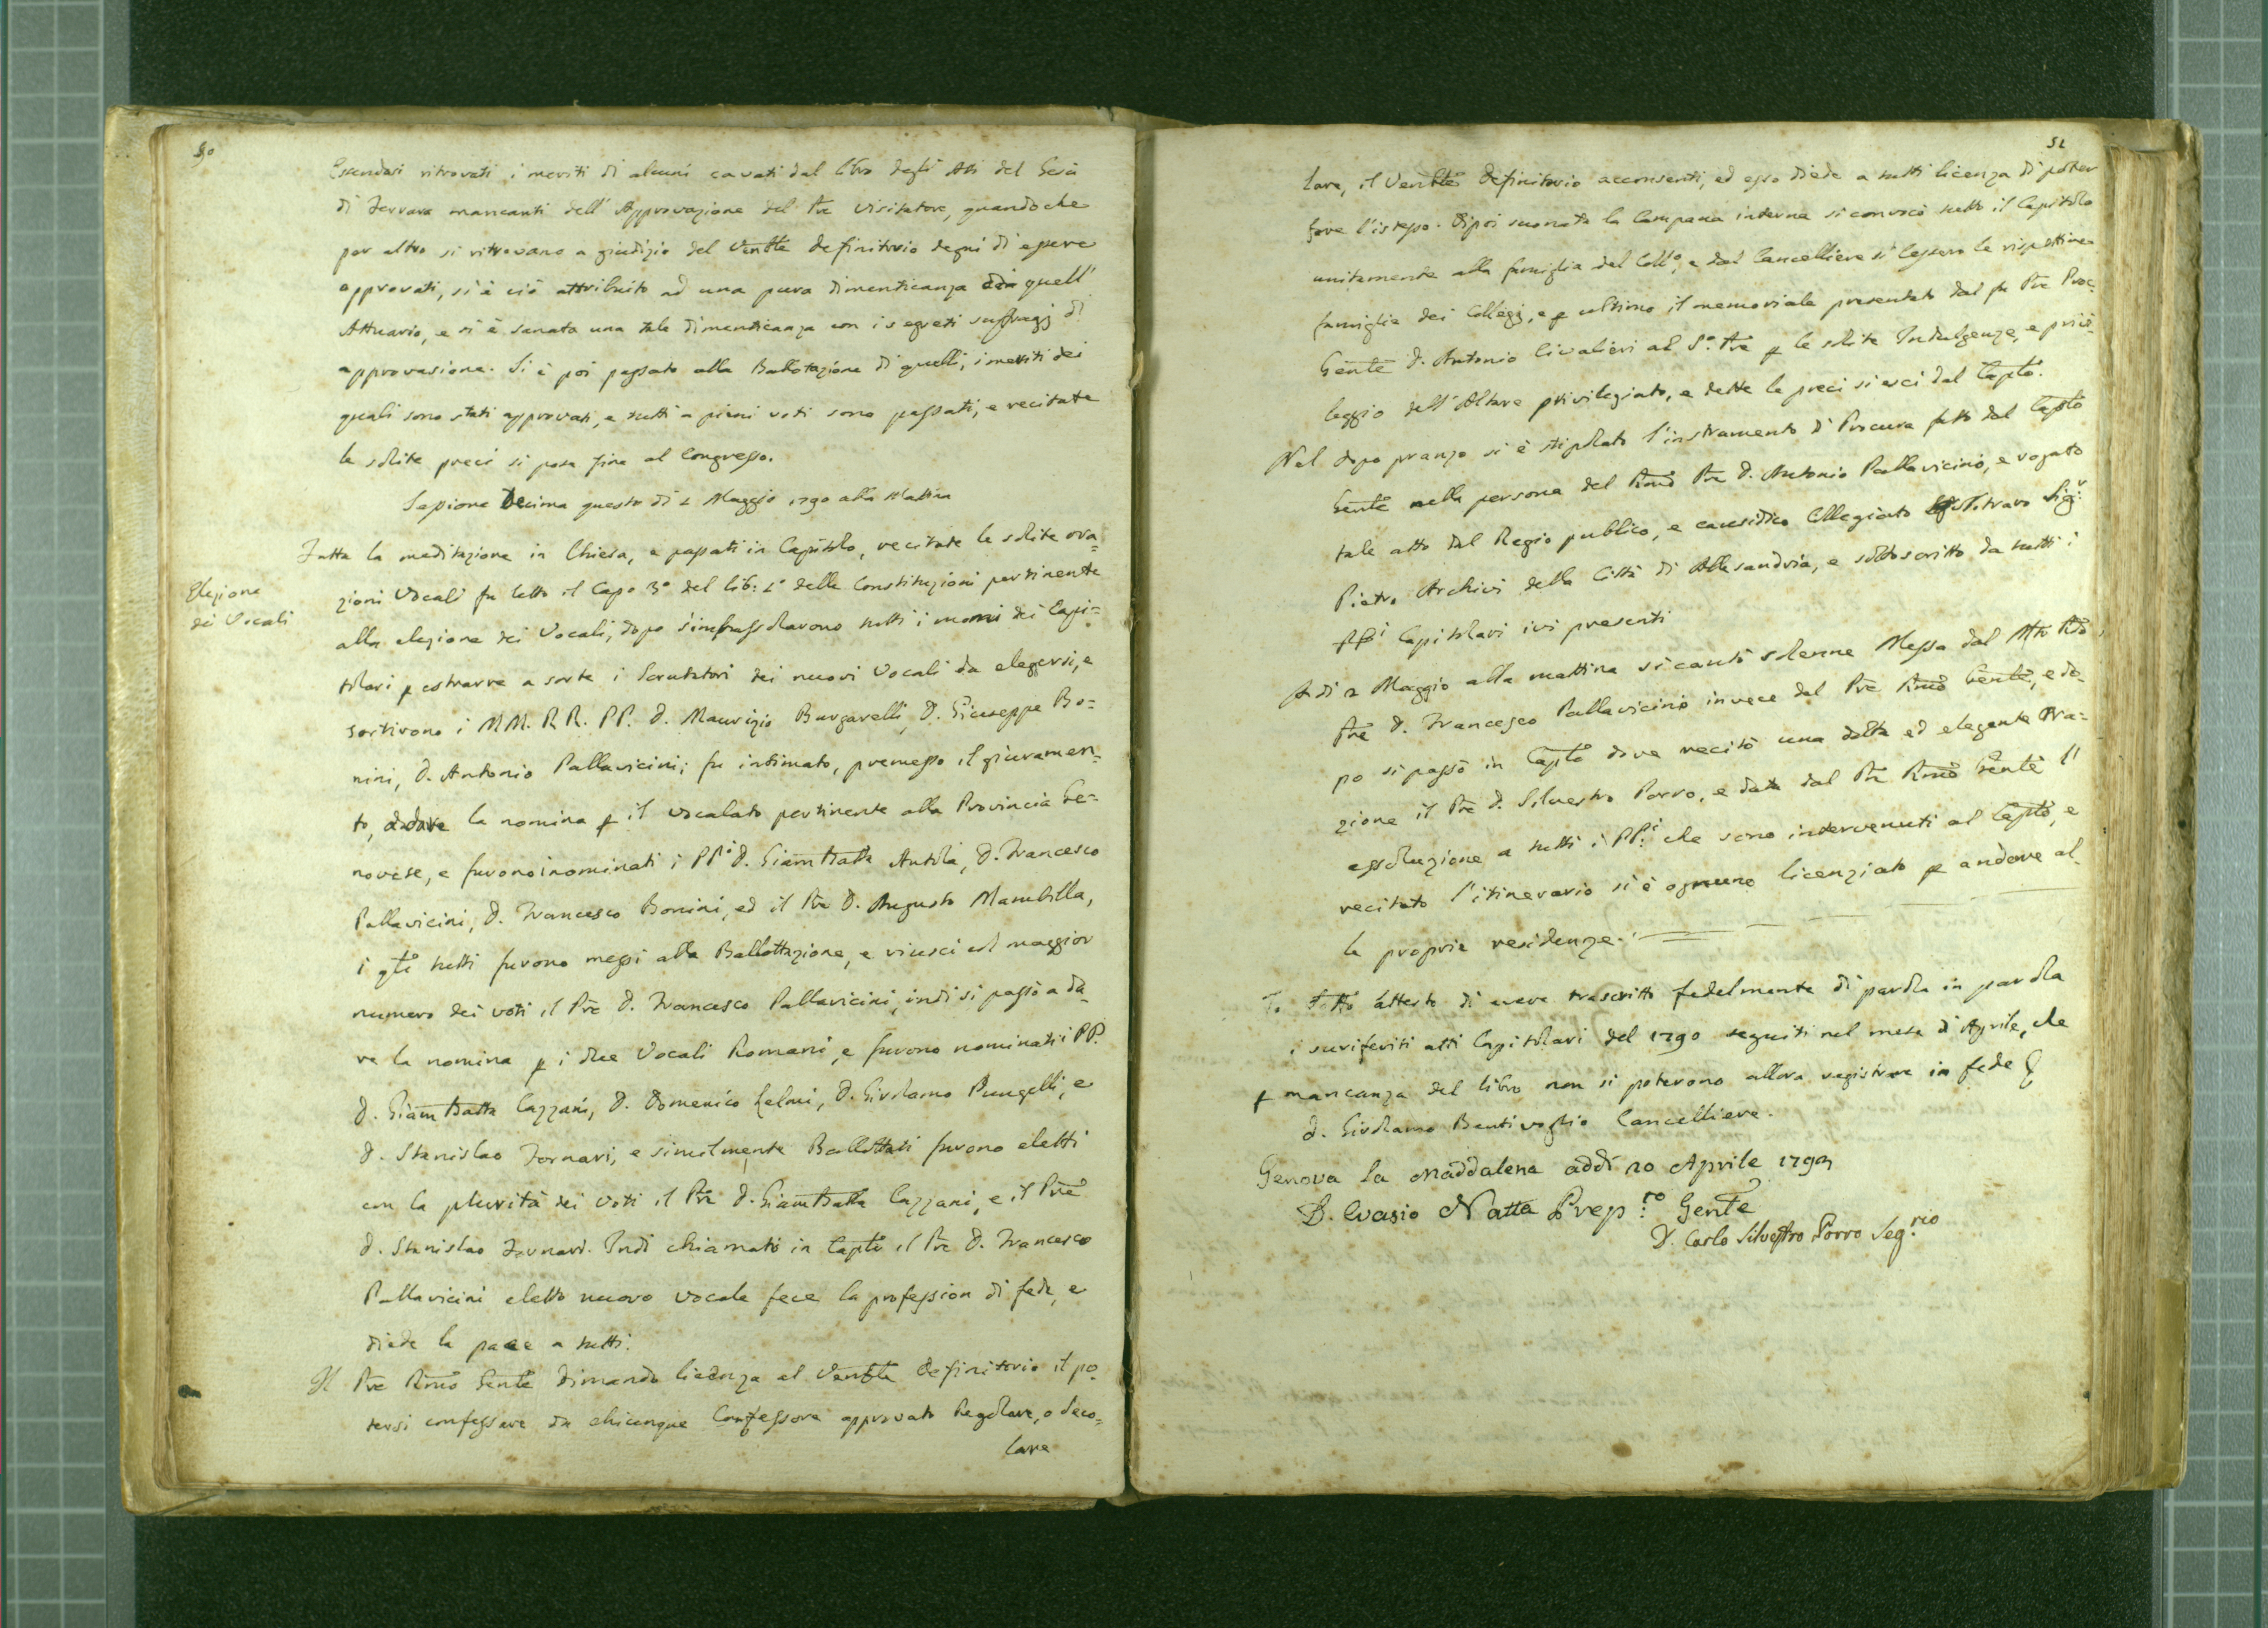 50
Essendosi ritrovati i meriti di alcuni cavati dal libro degli Atti del Gesù
di Ferrara mancanti dell' Approvazione del Pre Visitatore, quando che
per altro si ritrovano a giudizio del Venble definitorio degni di essere
approvati, si è ciò attribuito ad una pura dimenticanza di quell'
Attuario, e si è sanata una tale dimenticanza con i segreti suffragj di
approvasione. Si è poi passato alla Ballotazione di quelli, i meriti dei
quali sono stati approvati, e tutti a pieni voti sono passati, e recitate
le solite preci si pose fine al Congresso.
Sessione Decima questo di 1 Maggio 1790 alla Mattina
Fatta la meditazione in Chiesa, e passati in Capitolo, recitate le solite ora=
Elezione
dei Vocali
zioni Vocali fu letto il Capo 3° del lib: 1° delle Constituzioni pertinente
alla elezione dei Vocali, dopo s'imbussolarono tutti i nomi dei Capi=
tolari p estrarre a sorte i Scrutatori dei nuovi Vocali da elegersi, e
sortirono i MM. RR. PP. D. Maurizio Burgarelli, D. Giuseppe Bo=
nini, D. Antonio Pallavicini; fu intimato, premesso il giuramen=
to, a dare la nomina p il vocalato pertinente alla Provincia Ge=
novese, e furono inominati i PPi D. Giambatta Antola, D. Francesco
Pallavicini, D. Francesco Bonini, ed il Pre D. Augusto Mambilla,
i qli tutti furono messi alla Ballottazione, e riuscì col maggior
numero dei voti il Pre D. Francesco Pallavicini, indi si passò a da=
re la nomina p i due Vocali Romani, e furono nominati i PP.
D. Giambatta Cazzani, D. Domenico Lelmi, D. Girolamo Pungelli, e
D. Stanislao Fornari, e similmente Ballottati furono eletti
con la plurità dei Voti il Pre D. Giambatta Cazzani, e il Pre
D. Stanislao Fornari. Indi chiamato in Caplo il Pre D. Francesco
Pallavicini eletto nuovo vocale fece la profession di fede, e
diede la pace a tutti.
Il Pre Rmo Gente dimandò licenza al Venble Definitorio il po=
tersi confessare da chiunque Confessore approvato Regolare, o Seco=
lare
51
lare, il Venble Definitorio acconsentì, ed esso diede a tutti licenza di poter
fare l'istesso. Dipoi suonata la Campana interna si convocò tutto il Capitolo
unitamente alla famiglia del Collo, e dal Cancelliere si lessero le rispettive
famiglie dei Collegj, e p ultimo il memoriale presentato dal fu Pre Proc.
Gente D. Antonio Civalieri al So. Pre p le solite Indulgenze, e privi=
leggio dell'Altare privilegiato, e dette le preci si uscì dal Caplo.
Nel dopo pranzo si è stipolato l'instramento di Procura fatto dal Caplo
Gente nella persona del Rmo Pre D. Antonio Pallavicino, e rogato
tale atto dal Regio publico, e causidico Collegiato Sigr
Pietro Archivi della Città di Allesandria, e sottoscritto da tutti i
PPi Capitolari ivi presenti
A di 2 Maggio alla mattina si cantò solenne Messa dal Mto Rdo
Pre D. Francesco Pallavicino invece del Pre Rmo Gente, e do=
po si passò in Caplo dove recitò una dotta ed elegante Ora=
zione il Pre D. Silvestro Porro, e data dal Pre Rmo Gente l'
assoluzione a tutti i PP.i che sono intervenuti al Caplo, e
recitato l'itinerario si è ognuno licenziato p andare al=
le proprie residenze.
Io Sotto attesto di avere trascritto fedelmente di parola in parola
i suriferiti atti Capitolari del 1790 seguiti nel mese di Aprile, che
p mancanza del libro non si poterono allora registrare in fede
D. Girolamo Bentivoglio Cancelliere.
Genova la Maddalena addì 20 Aprile 1793
D. Evasio Natta Prep:ro Gente
D. Carlo Silvestro Porro Seg:rio